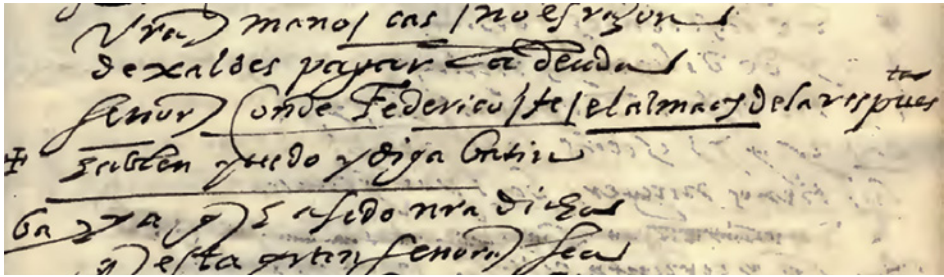 Vras manos / cas / no es razon
dexaldes pagar la deuda
señor Conde Federico / fe / el alma os de la respuesta
hablen quedo y diga batin
ba ya q ha sido nra dicha
q esta gran señora sea